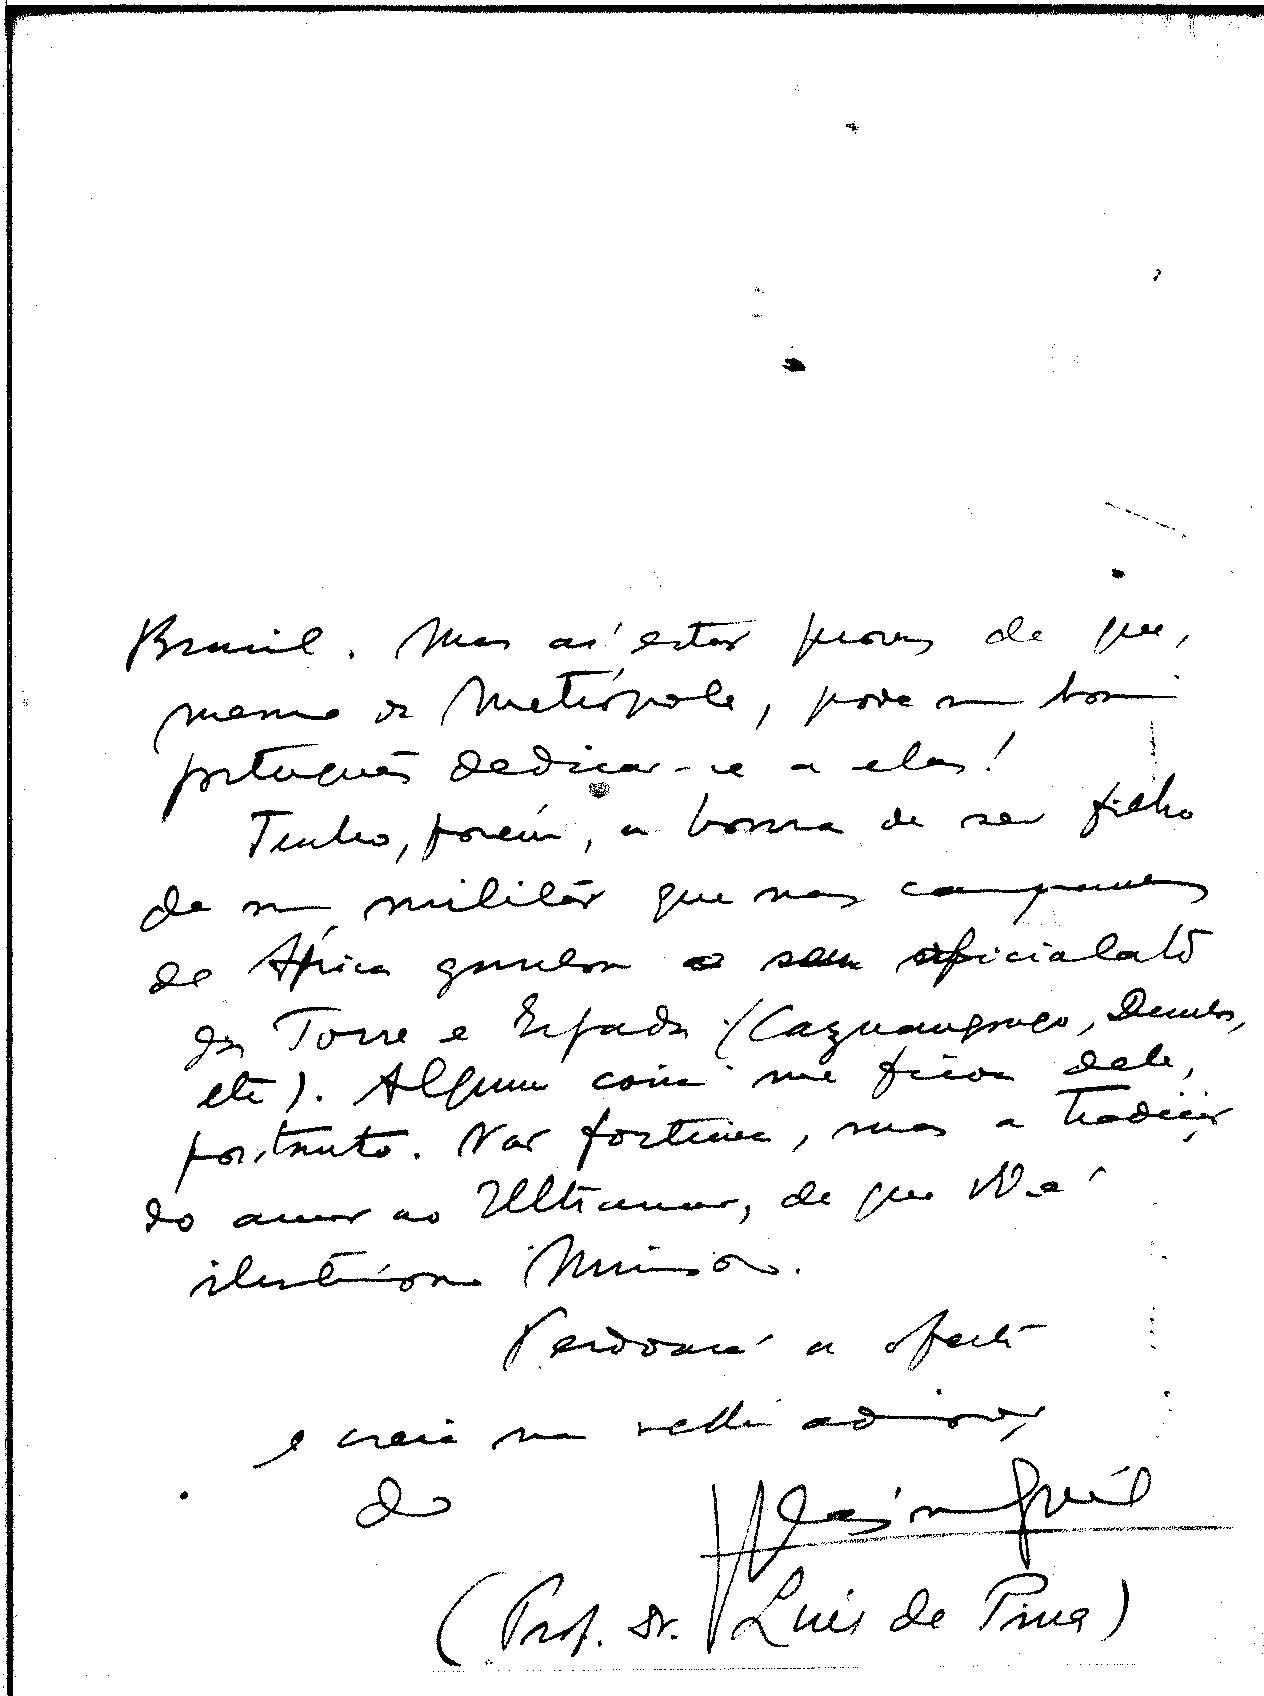 Brasil. Mas aí estão provas de que,
mesmo da Metrópole, pode um bom
português dedicar-se a elas!
Tenho, porém, a honra de ser filho
de um militar que nas campanhas
de África ganhou o seu oficialato
da Torre e Espada (Cazuangongo, Dembos,
etc). Alguma coisa me ficou dele,
portanto. Não fortuna, mas a tradição
do amor ao Ultramar, de que V. é
ilustre
Perdoará a oferta
e creia na admiração,
do
(Prof. Dr. Luís de Pina)